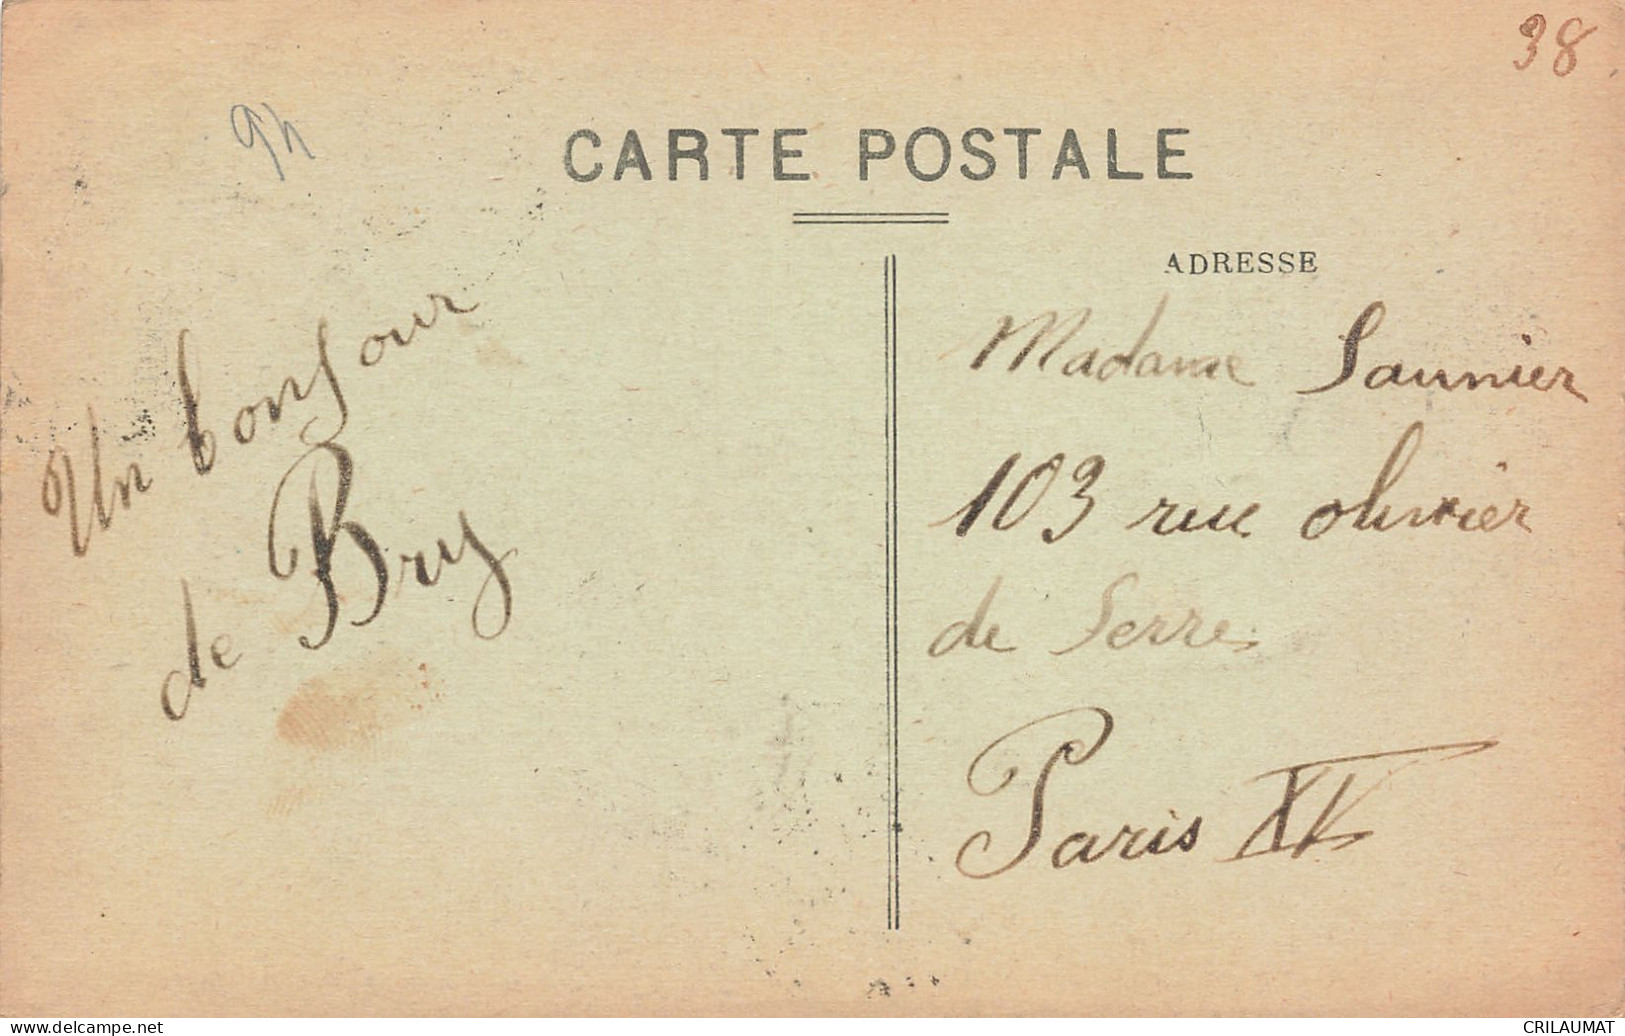 38
94
CARTE POSTALE
ADRESSE
Un bonjour
de Bry
Madame Saunier
103 rue olivier
de Serres
Paris XV
website : www.delcampe.net
CRILAUMAT